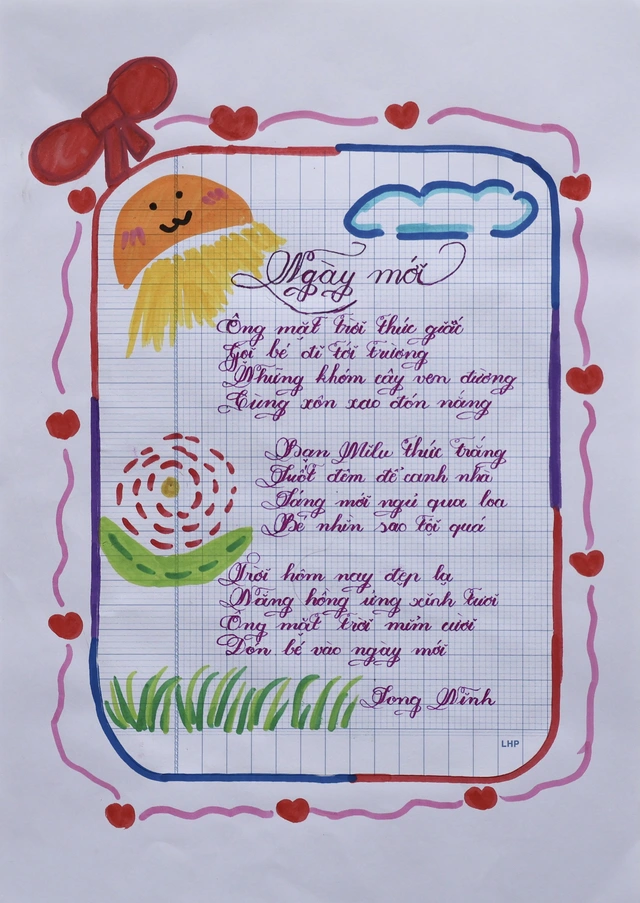 Ngày mới
Ông mặt trời thức giấc
Gọi bé đi tới trường
Những khóm cây ven đường
Cùng xôn xao đón nắng
Bạn Milu thức trắng
Suốt đêm để canh nhà
Sáng mới ngủ qua loa
Bé nhìn sao tội quá
Trời hôm nay đẹp lạ
Nắng hồng ửng xinh tươi
Ông mặt trời mỉm cười
Đón bé vào ngày mới
Song Ninh
LHP